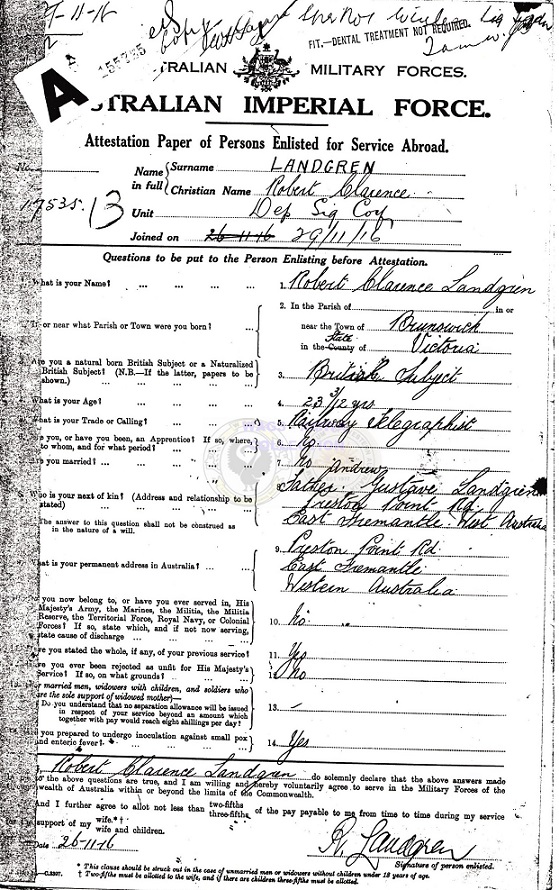 -11-16
Copy
FIT.—DENTAL TREATMENT NOT REQUIRED.
155335
A
TRALIAN MILITARY FORCES.
STRALIAN IMPERIAL FORCE.
Attestation Paper of Persons Enlisted for Service Abroad.
No.
Name in full
Surname LANDGREN
Christian Name Robert Clarence
17535. 13
Unit Dep Sig Coy
Joined on 26-11-16 29/11/16
Questions to be put to the Person Enlisting before Attestation.
What is your Name? ... ... ... ... 1. Robert Clarence Landgren
2. In the Parish of in or
In or near what Parish or Town were you born? ... near the Town of Brunswick
State
in the County of Victoria
Are you a natural born British Subject or a Naturalized
British Subject? (N.B.—If the latter, papers to be
shown.) 3. British Subject
What is your Age? 4. 23 3/12 yrs
What is your Trade or Calling? 5. Railway Telegraphist
Are you, or have you been, an Apprentice? If so, where,
to whom, and for what period? 6. No
Are you married? 7. No
Andrew
Who is your next of kin? (Address and relationship to be
stated) 8. Father. Gustave Landgren
Preston Point Rd.
East Fremantle. West Australia
The answer to this question shall not be construed as
in the nature of a will.
What is your permanent address in Australia? 9. Preston Point Rd
East Fremantle
Western Australia
Do you now belong to, or have you ever served in, His
Majesty's Army, the Marines, the Militia, the Militia
Reserve, the Territorial Force, Royal Navy, or Colonial
Forces? If so, state which, and if not now serving,
state cause of discharge 10. No.
Have you stated the whole, if any, of your previous service? 11. Yes
Have you ever been rejected as unfit for His Majesty's
Service? If so, on what grounds? 12. No
For married men, widowers with children, and soldiers who
are the sole support of widowed mother—
Do you understand that no separation allowance will be issued
in respect of your service beyond an amount which
together with pay would reach eight shillings per day? 13. –
Are you prepared to undergo inoculation against small pox
and enteric fever? 14. Yes
I, Robert Clarence Landgren do solemnly declare that the above answers made
by me to the above questions are true, and I am willing and hereby voluntarily agree to serve in the Military Forces of the
Commonwealth of Australia within or beyond the limits of the Commonwealth.
And I further agree to allot not less than two-fifths three-fifths of the pay payable to me from time to time during my service
for the support of my wife.*† wife and children.
Date 26-11-16
R. Landgren
Signature of person enlisted.
* This clause should be struck out in the case of unmarried men or widowers without children under 18 years of age.
C.5307. † Two-fifths must be allotted to the wife, and if there are children three-fifths must be allotted.